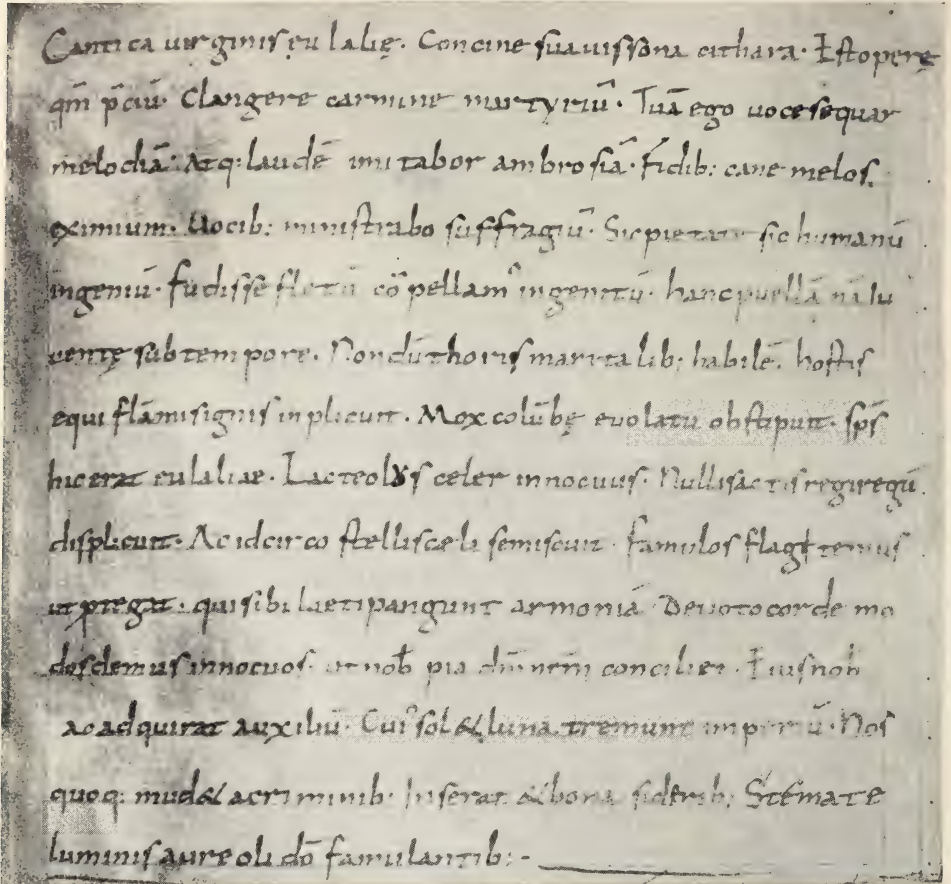 Cantica uirginis eulalię. Concine suauissona cithara. Est operę
qm̄ p̄ciū. Clangere carmine martyriū. Tuā ego uoce sequar
melodiā. Atq: laudē imitabor ambrosiā. Fidib: cane melos.
eximium. Uocib: ministrabo suffragiū. Sic pietate sic humanū
ingeniū. fudisse fletū cō pellam᾿ ingenitū. hanc puellā nā iu
uentę sub tempore. Nondū thoris maritalib; habilē. hostis
equi flāmis ignis inplicuit. Mox colūbę euolatu obstipuit. sp̄s
hic erat eulaliae. Lacteolus celer innocuus. Nullis actis regi regū
displicuit. Ac idcirco stellis cæli se miscuit. famulos flagitemus
ut ptegat. qui sibi laeti pangunt armoniā. Deuoto corde mo
dos demus innocuos. ut nob̄ pia dm̄ nr̄m conciliet. Eius nob̄
ac adquirat auxiliū. Cui᾿ sol & luna tremunt imperiū. Nos
quoq: mūd& a criminib: Inserat & bona siderib; Stēmate
luminis aureoli dō famulantib:-